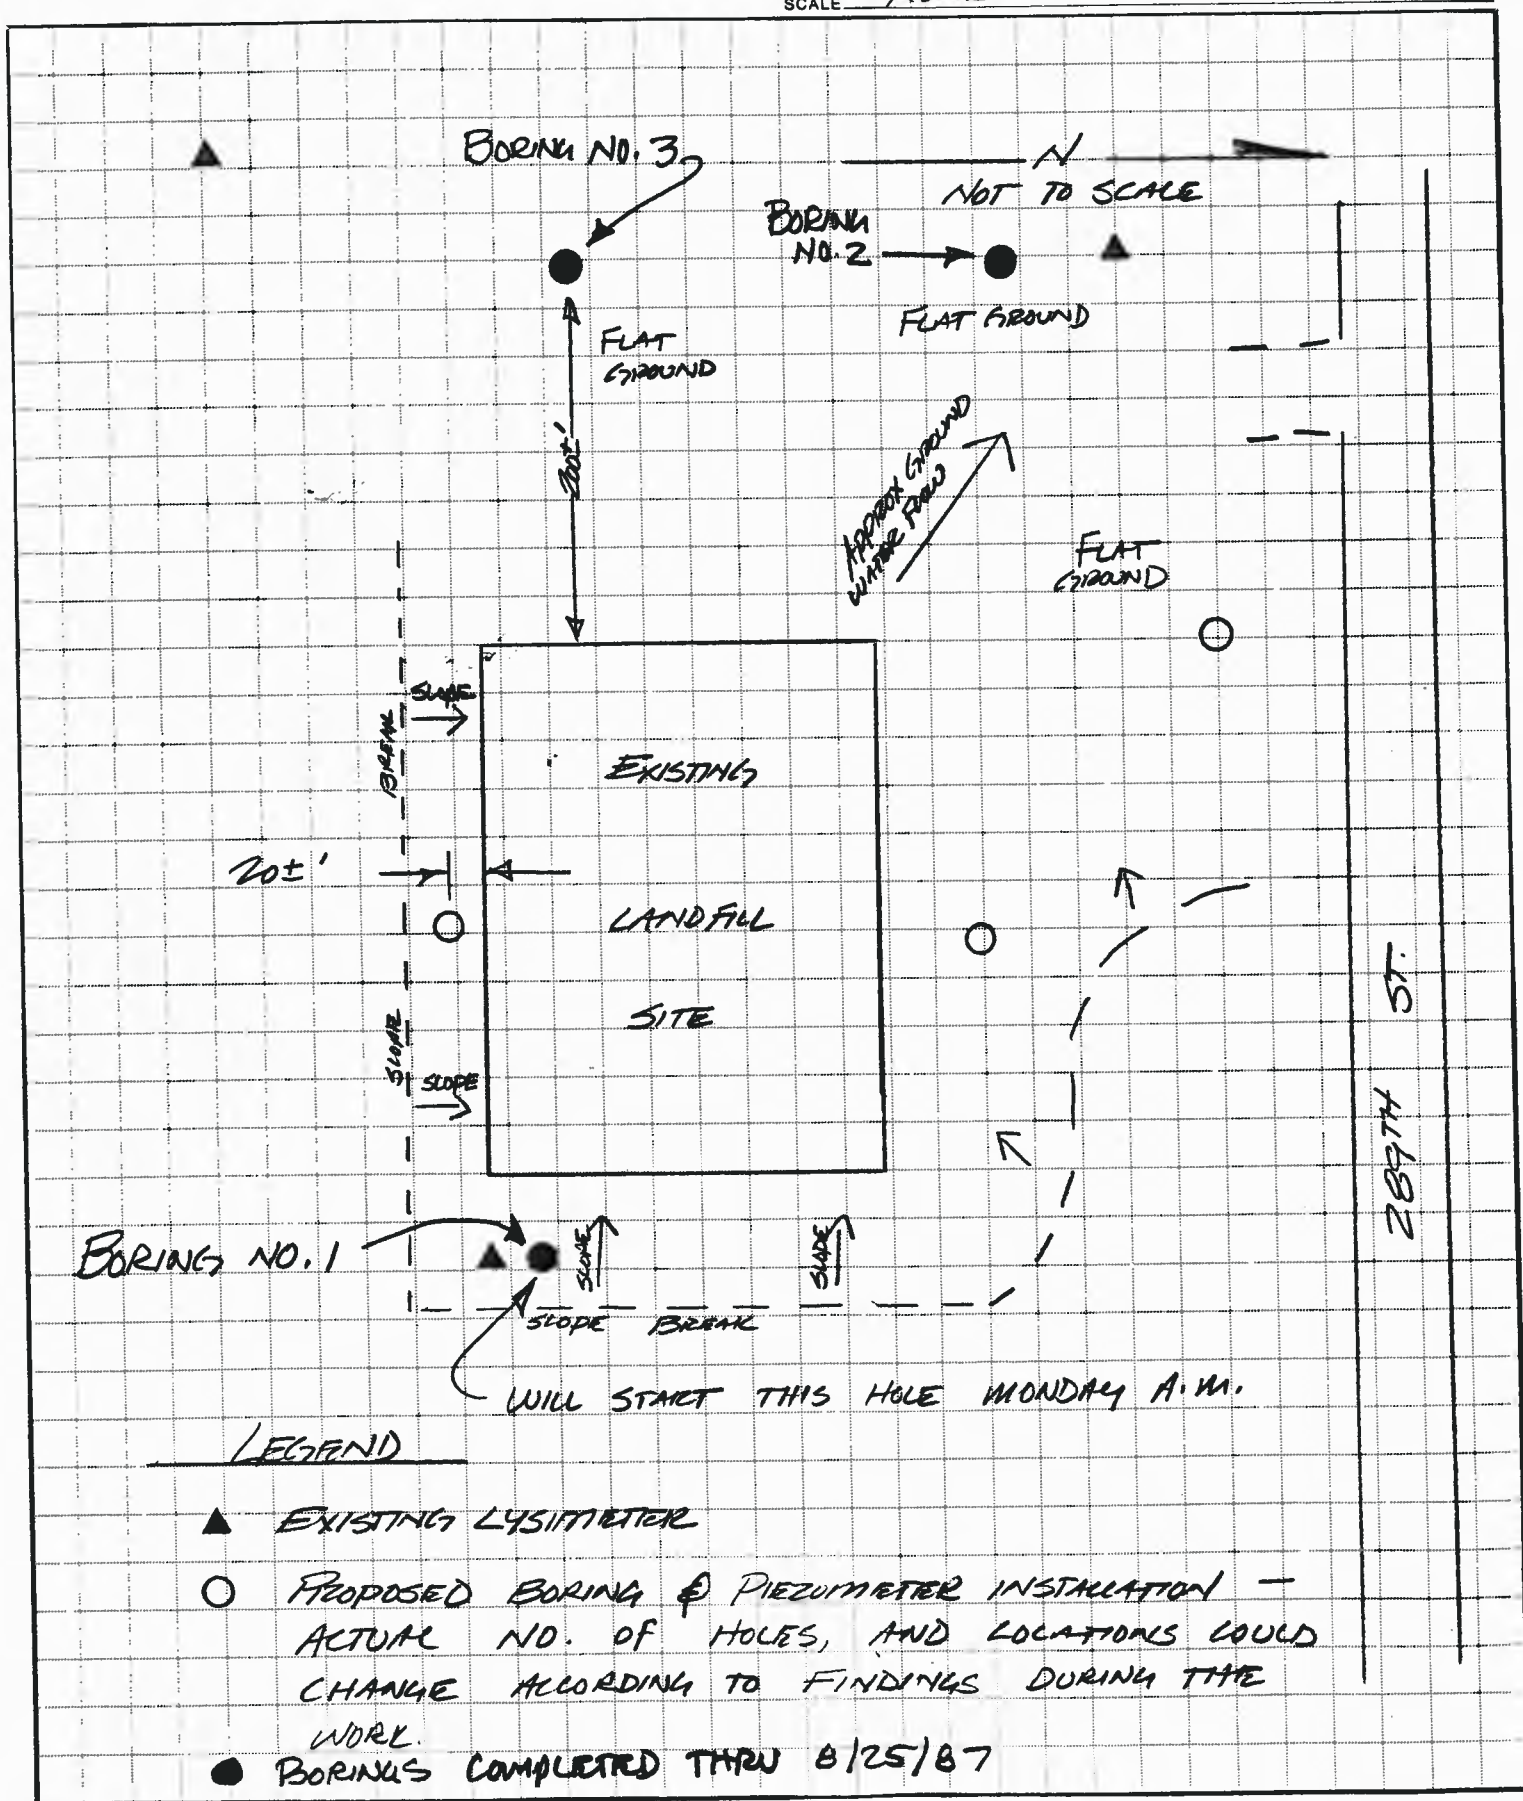 SCALE
BORING NO. 3
N
NOT TO SCALE
BORING
NO. 2
FLAT GROUND
FLAT
GROUND
200±'
APPROX GROUND
WATER FLOW
FLAT
GROUND
SLOPE
BREAK
EXISTING
20±'
LANDFILL
SITE
SLOPE
SLOPE
289TH ST.
BORING NO. 1
SLOPE
SLOPE
SLOPE BREAK
WILL START THIS HOLE MONDAY A.M.
LEGEND
EXISTING LYSIMETER
PROPOSED BORING & PIEZOMETER INSTALLATION —
ACTUAL NO. OF HOLES, AND LOCATIONS COULD
CHANGE ACCORDING TO FINDINGS DURING THE
WORK.
BORINGS COMPLETED THRU 8/25/87